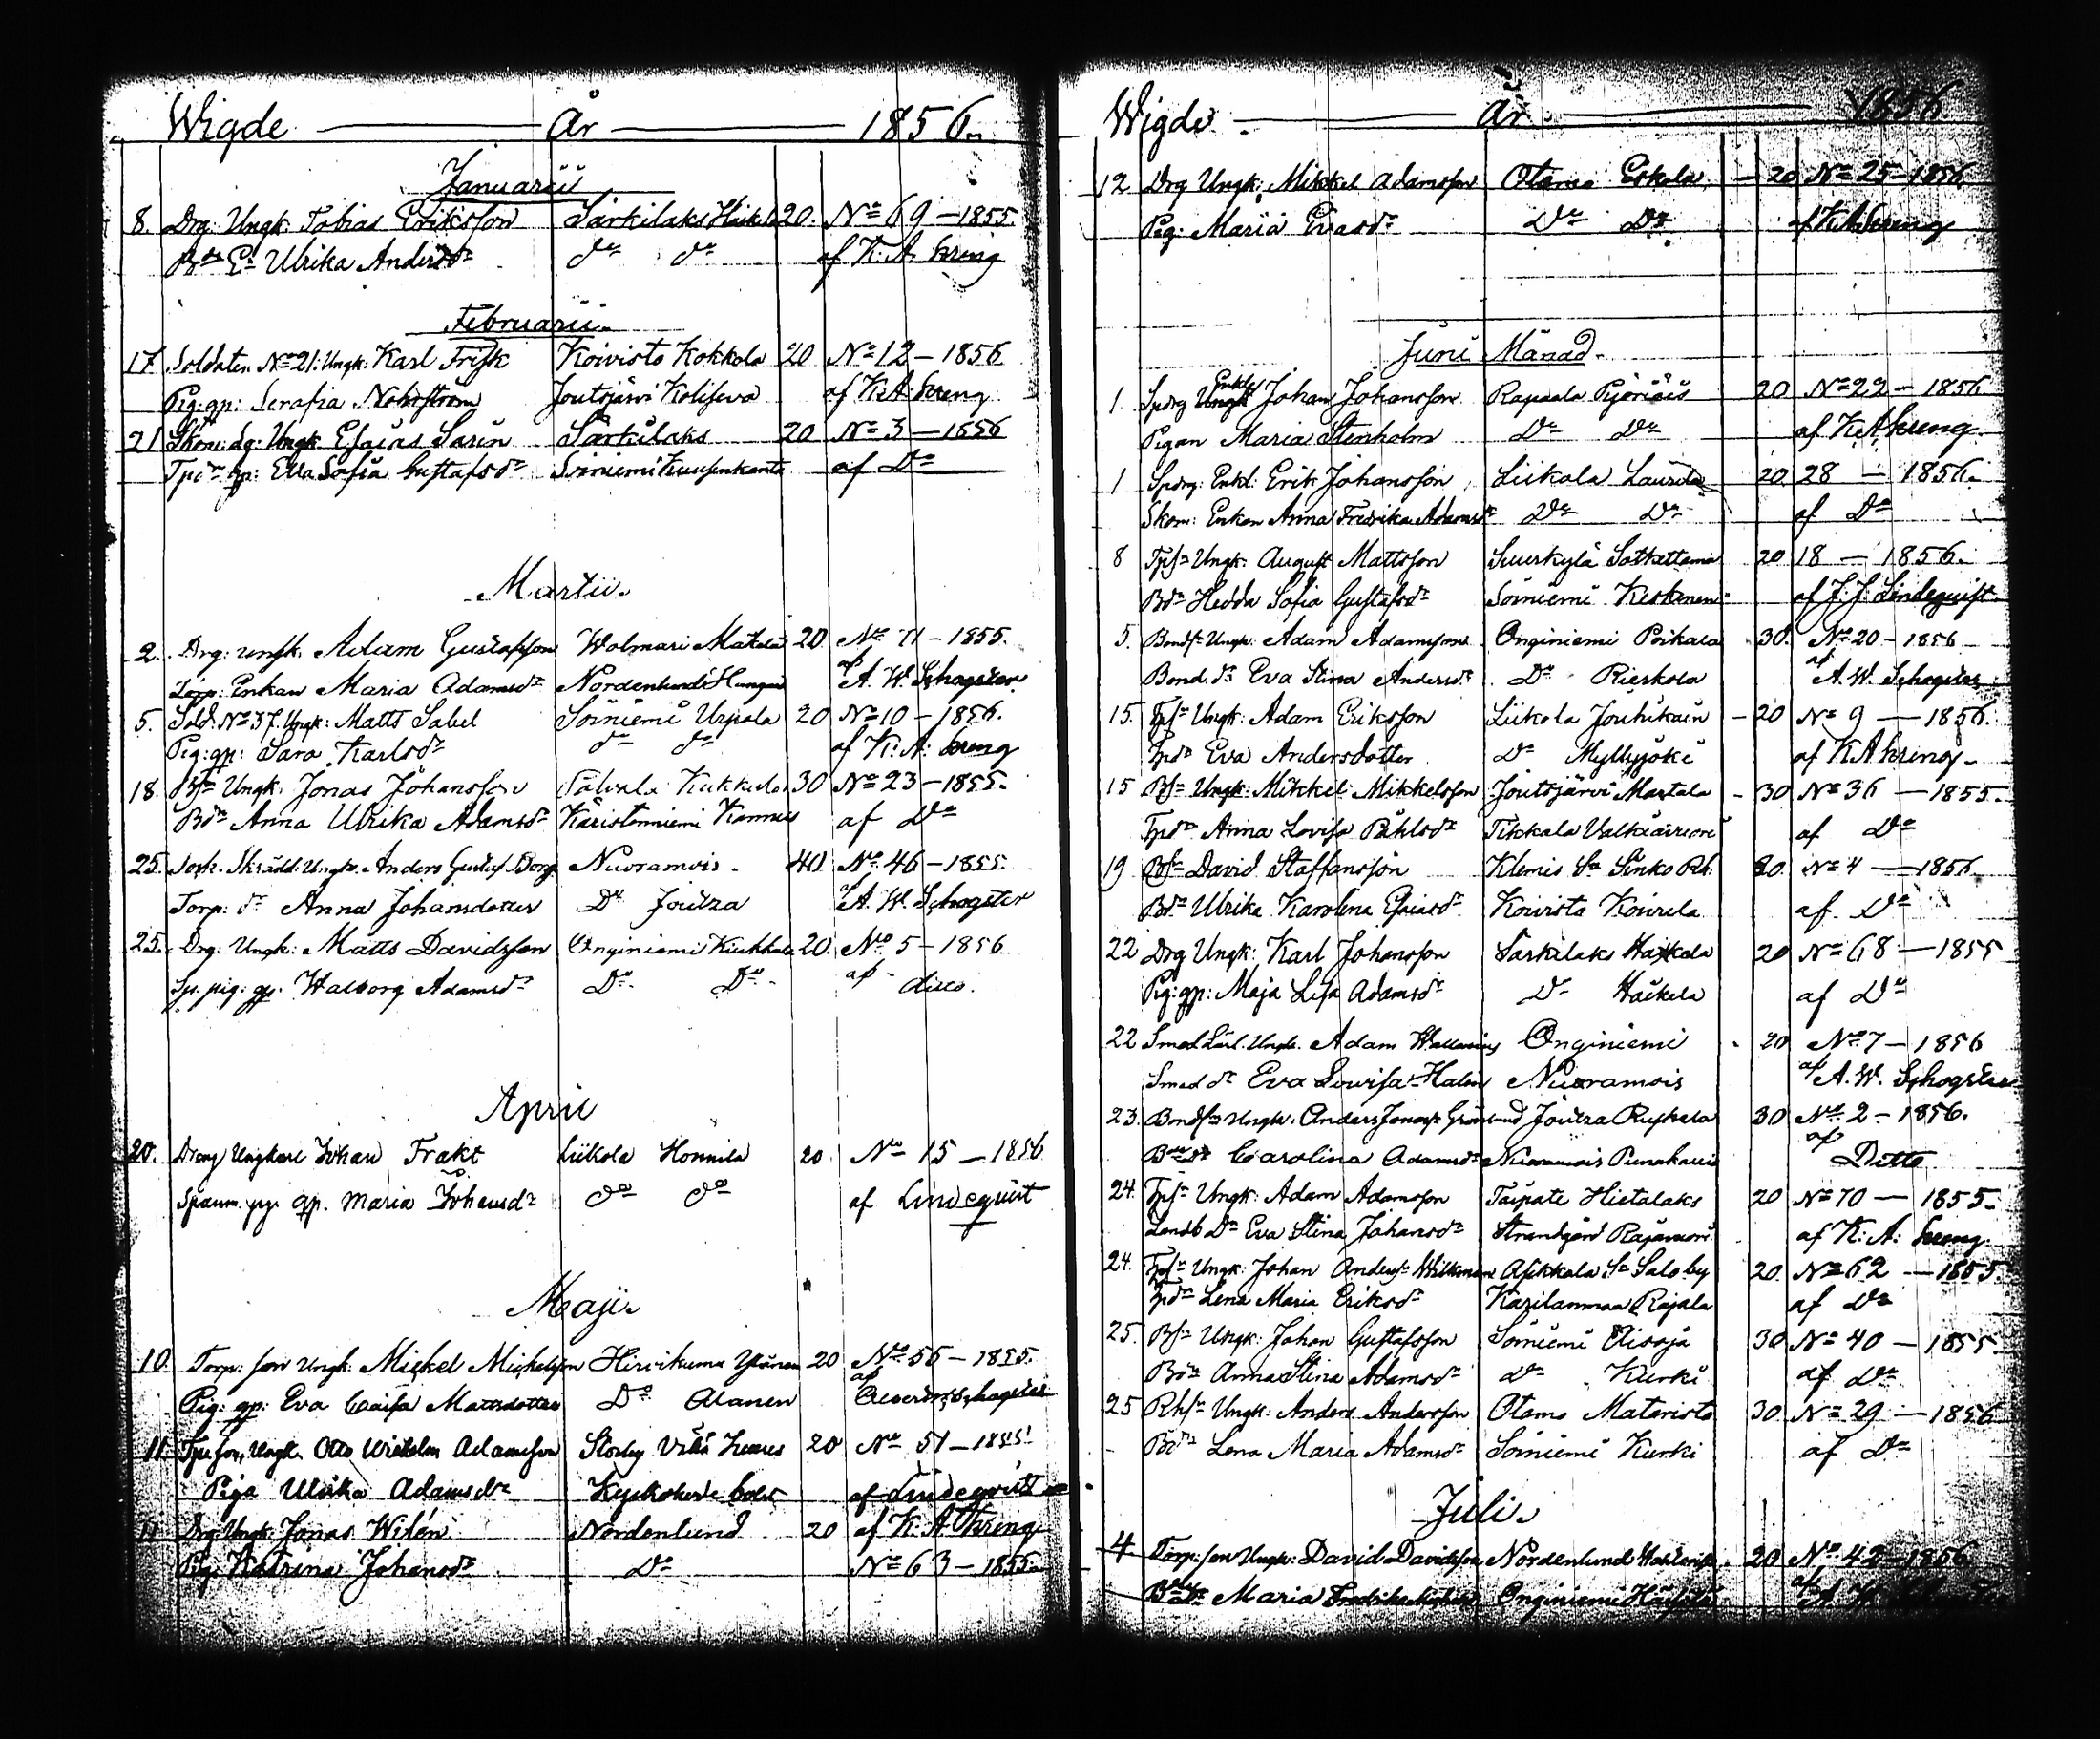 Wigde År 1856.
Januarii
8. Drg: Ungk. Tobias Eriksson Särkilaks Haikla 20. No 69 - 1855.
Bds Ea Ulrika Andersdr do do af K. A. Kreng
Februarii
17 Soldaten No 21: Ungk: Karl Frisk Koivisto Kokkola 20 No 12 - 1856
Pig: gp: Serafia Nohrström Joutsjärvi Koliseva af K. A. Kreng
21 Skom: dg: Ungk Esaias Sarin Särkilaks 20 No 3 - 1856
Tpdr gp: Eva Sofia Gustafsdr Soiniemi Kuusenkanta af Do
Martii.
2. Drg: ungk. Adam Gustafsson Wolmari Matala 20 No 71 - 1855.
Torp: Enkan Maria Adamsdr Nordenlund af A. W. Schogster
5. Sold. No 37. Ungk: Matts Sabel Soiniemi Urpola 20 No 10 - 1856.
Pig: gp: Sara Karlsdr do do af K: A: Kreng
18. Bsn Ungk. Jonas Johansson Pätiälä Kukkula 30 No 23 - 1855.
Bdr Anna Ulrika Adamsdr Karistonniemi Kannus af Do
25. Sock. Skrädd: Ungk. Anders Gustaf Borg Nuoramois. 40 No 46 - 1855.
Torp: dr Anna Johansdotter Do Joutza A. W. Schogster
25. Drg: Ungk: Matts Davidsson Onginiemi Kuckkola 20 No 5 - 1856
Sp. pig: gp. Walborg Adamsdr Do Do af dito.
April
20. Dreng Ungkarl Johan Frakt Liikola Honnila 20 No 15 - 1856
Spanm. pig. gp. Maria Johansdr do do af Lindequist
Maji
10. Torp: son Ungk. Mickel Mickelsson Hirvikuma Ylänen 20 No 55 - 1855.
Pig: gp: Eva Caisa Mattsdotter Do Alanen af Schogster
11. Tp: son, Ungk. Otto Wilhelm Adamsson Storby 20 No 51 - 1855
Piga Ulrika Adamsdr af Lindequist
11 Drg: Ungk. Jonas Wilén Nordenlund 20 af K. A. Kreng
Pig: Katrina Johansdr Do No 63 - 1855.
Wigde År 1856
12 Drg Ungk: Mikkel Adamsson Otamo Eskola - 20 No 25 - 1856
Pig: Maria Evasdr Do Do af K A Kreng
Juni Månad.
1 Spdrg Enkl Ungk Johan Johansson Rapaala Pyöriäis 20 No 22 - 1856
Pigan Maria Stenholm Do Do af K A Kreng
1 Spdrg: Enkl: Erik Johansson Liikola Laurila 20 28 - 1856.
Skom: Enkan Anna Fredrika Adamsdr Do Do af Do
8 Tpsn Ungk: August Mattsson Suurkylä Sotkettama 20 18 - 1856.
Bdr Hedda Sofia Gustafsdr Soiniemi Keskinen af J. J. Lindequist
5. Bondsn Ungk. Adam Adamsson Onginiemi Poikala 30. No 20 - 1856
Bond. dr Eva Stina Andersdr Do Pieskola af A. W. Schogster
15. Tpsn Ungk: Adam Eriksson Liikola Jouhikain - 20 No 9 - 1856.
Tpdr Eva Andersdotter Do Myllyjoki af K A Kreng
15 Bsn Ungk: Mikkel Mikkelsson Joutsjärvi Mastala - 30 No 36 - 1855.
Tpdr Anna Lovisa Påhlsdr Tikkala af Do
19 Bsn David Staffansson Klemis Sn Sinko Rh. 20 No 4 - 1856
Bdr Ulrika Karolina Esaiasdr Koivisto Koivula af Do
22 Drg Ungk: Karl Johansson Särkilaks Haikkala 20 No 68 - 1855
Pig: gp: Maja Lisa Adamsdr Do Haikela af Do
22 Smed Lärl. Ungk. Adam Wallenius Onginiemi 20 No 7 - 1856
Smed dr Eva Lovisa Halin Nuoramois af A. W. Schogster
23. Bondsn Ungk. Anders Jonass Grönlund Joutza Ruskala 30 No 2 - 1856.
Bdr Carolina Adamsdr Nuoramois Punakallio af Ditto
24. Tpsn Ungk: Adam Adamsson Taipale Hietalaks 20 No 70 - 1855.
Landb Dr Eva Stina Johansdr Strandgård Rajavuori af K: A: Kreng
24. Tpsn Ungk: Johan Anderss Willman Asikkala Sn Salo by 20. No 62 - 1855.
Tpdr Lena Maria Eriksdr Karilanmaa Rajala af Do
25. Bsn Ungk: Johan Gustafsson Soiniemi Aisoja 30 No 40 - 1855.
Bdr Anna Stina Adamsdr Do Kurki af Do
25 Rhsn Ungk: Anders Andersson Otamo Mataristo 30 No 29 - 1856
Bdr Lena Maria Adamsdr Soiniemi Kurki af Do
Juli.
4 Torp: son Ungk: David Davidsson Nordenlund 20 No 42 - 1856
Maria Fredrika Onginiemi af A. W.